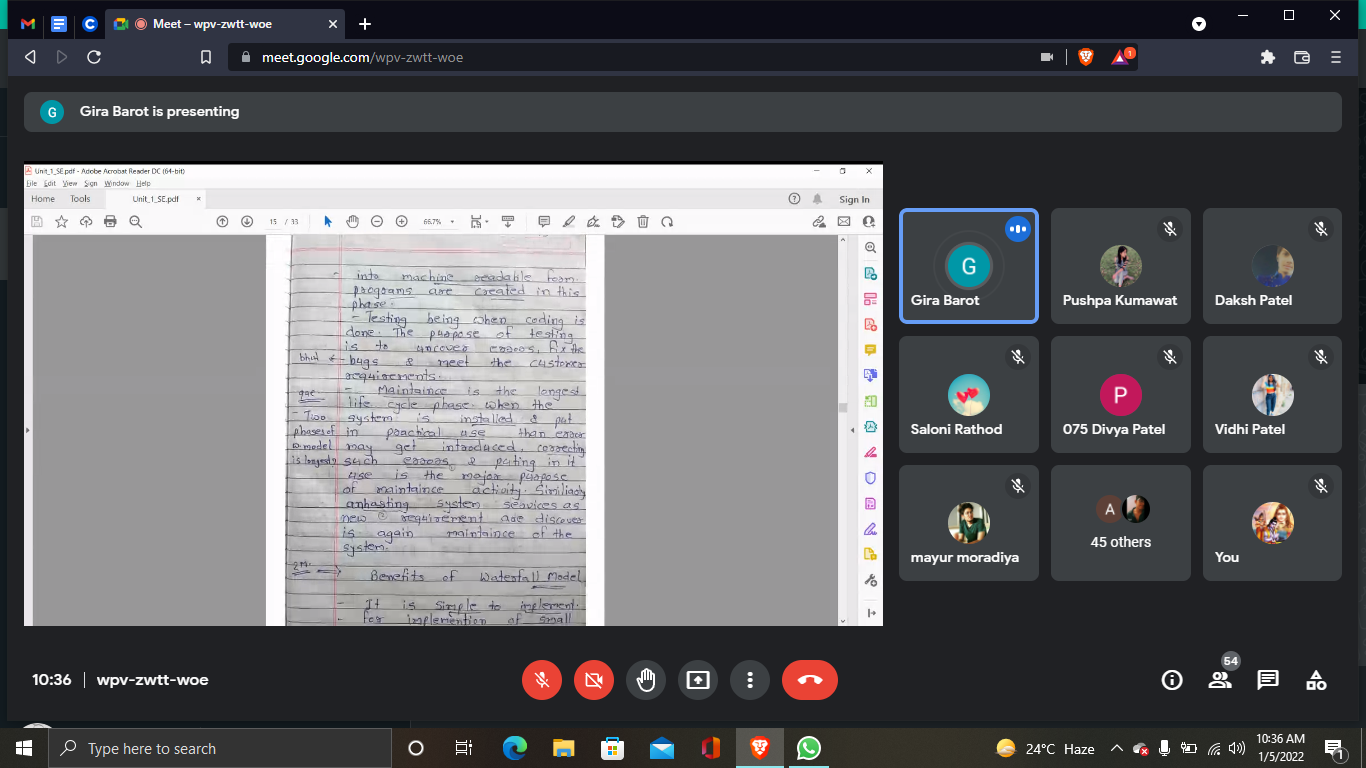 Meet – wpv-zwtt-woe
meet.google.com/wpv-zwtt-woe
1
G
Gira Barot is presenting
Unit_1_SE.pdf - Adobe Acrobat Reader DC (64-bit)
File Edit View Sign Window Help
Home Tools Unit_1_SE.pdf × Sign In
15 / 33 66.7%
- into machine readable form
programs are created in this
phase.
- Testing being when coding is
done. The purpose of testing
is to uncover errors, fix the
bugs & meet the customer
requirements.
- Maintaince is the longest
life cycle phase. when the
- Two system is installed & put
phases of in practical use than error
model may get introduced, correcting
is longest? such errors & puting in it
use is the major purpose
of maintaince activity. Similiarly
anhasting system services as
new requirement are discover
is again maintaince of the
system.
2M. Benefits of Waterfall Model
- It is simple to implement.
- For implemention of small
G
Gira Barot
Pushpa Kumawat
Daksh Patel
Saloni Rathod
P
075 Divya Patel
Vidhi Patel
mayur moradiya
A
45 others
You
10:36 | wpv-zwtt-woe
54
Type here to search
24°C Haze
10:36 AM
1/5/2022
1